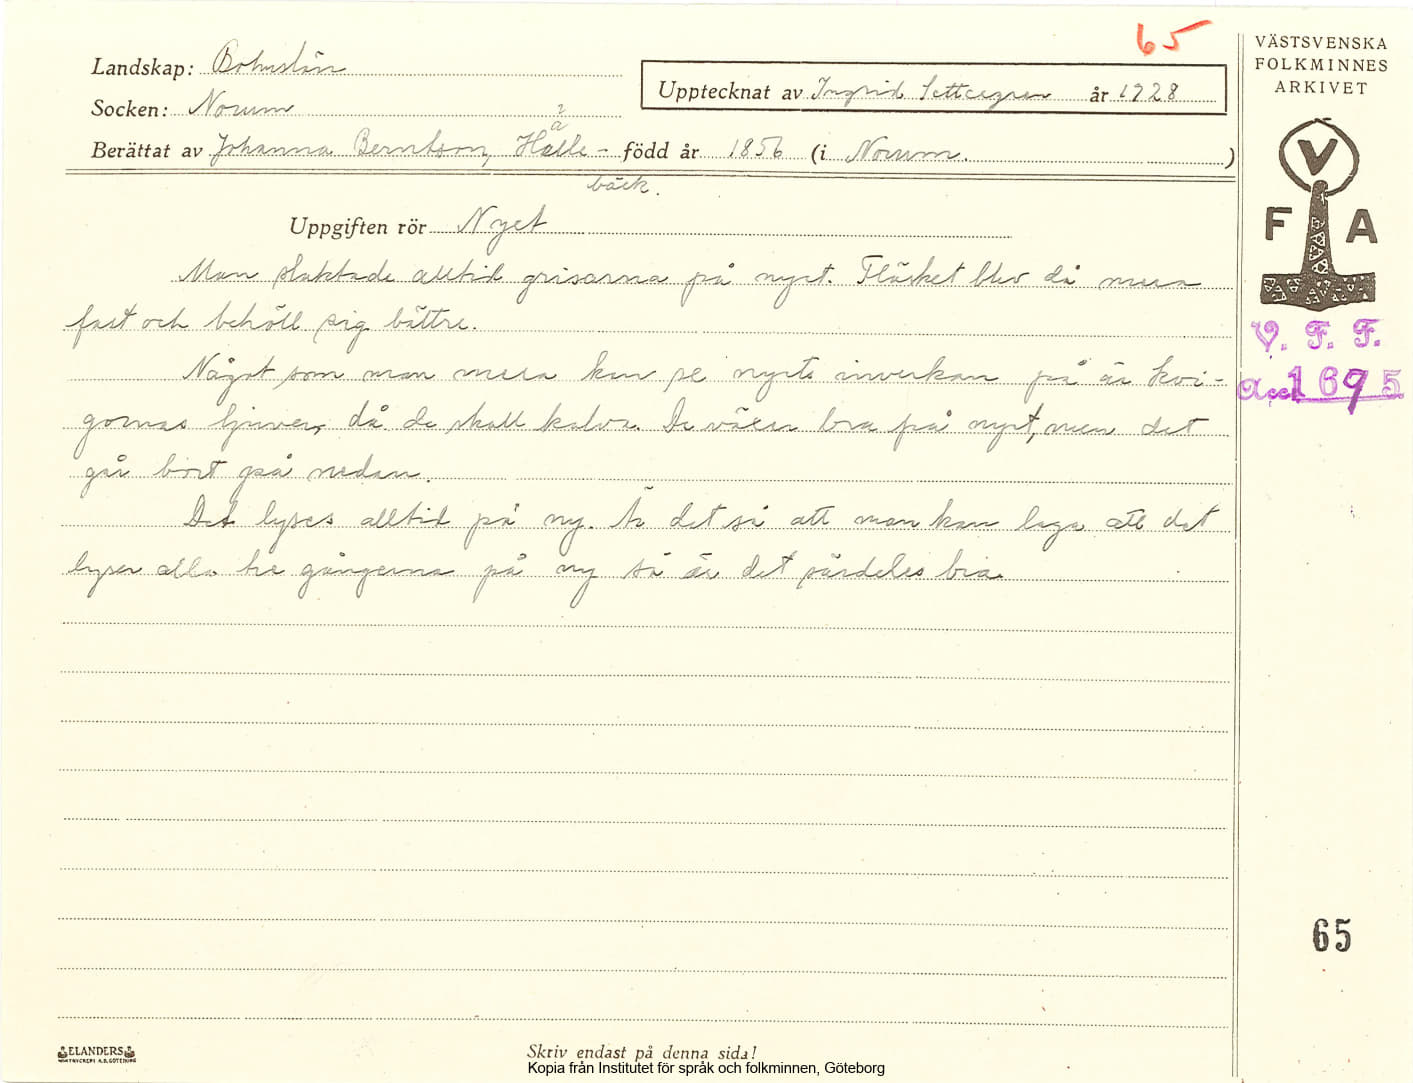 65
Landskap: Bohuslän
Socken: Norum
Upptecknat av Ingrid år 1928
VÄSTSVENSKA
FOLKMINNES
ARKIVET
Berättat av Johanna Berntson, Hälle- född år 1856 (i Norum.)
bäck.
V
F A
Uppgiften rör Nyet
Man slaktade alltid grisarna på nyet. Fläsket blev då mera
fast och behöll sig bättre.
Något som man mera kan se nyets inverkan på är kvi-
gornas ljuver, då de skall kalva. De växer bra på nyet, men det
går bort på nedan.
Det lyses alltid på ny. Är det så att man kan laga att det
lyser alla tre gångerna på ny så är det särdeles bra.
V. F. F.
Acc. 1695
65
ELANDERS
Skriv endast på denna sida!
Kopia från Institutet för språk och folkminnen, Göteborg